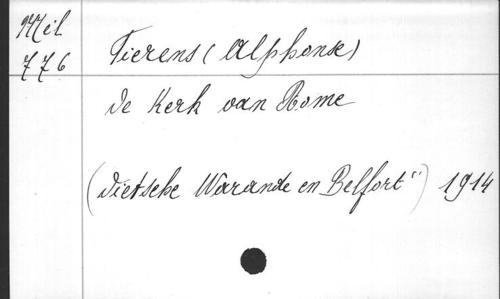 Mil
776
Tierens (Alphonse)
De Kerk van Rome
(Dietsche Warande en Belfort") 1914